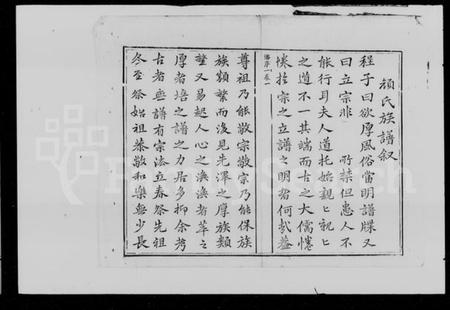 顏氏族譜叙
程子曰欲厚風俗當明譜牒又
曰立宗非 所禁但患人不
能行耳夫人道托始親親祀
之道不一其端而古之大儒惓
惓於宗之立譜之明者何哉蓋
譜序 卷一
尊祖乃能敬宗敬宗乃能保族
族類繁而後見先澤之厚族類
繁又易起人心之渙渙者萃之
厚者培之譜之力居多抑余考
古者無譜有宗法立春祭先祖
冬至祭始祖恭敬和樂無少長